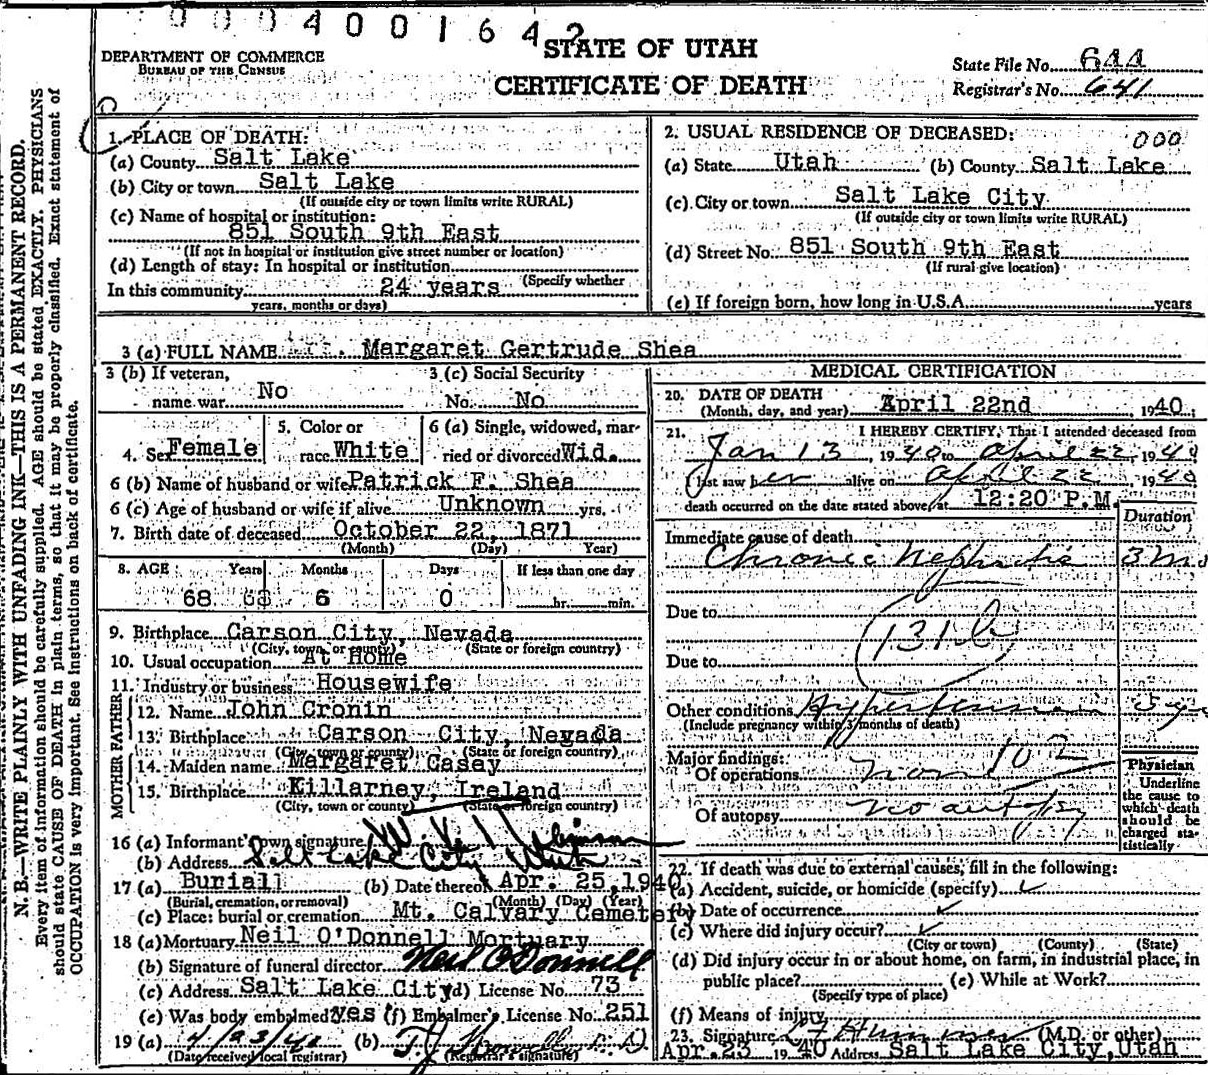 0004001642
STATE OF UTAH
CERTIFICATE OF DEATH
DEPARTMENT OF COMMERCE
BUREAU OF THE CENSUS
State File No. 644
Registrar's No. 641
N. B.—WRITE PLAINLY WITH UNFADING INK—THIS IS A PERMANENT RECORD.
Every item of information should be carefully supplied. AGE should be stated EXACTLY. PHYSICIANS
should state CAUSE OF DEATH in plain terms, so that it may be properly classified. Exact statement of
OCCUPATION is very important. See instructions on back of certificate.
1. PLACE OF DEATH:
(a) County Salt Lake
(b) City or town Salt Lake
(If outside city or town limits write RURAL)
(c) Name of hospital or institution:
851 South 9th East
(If not in hospital or institution give street number or location)
(d) Length of stay: In hospital or institution
(Specify whether
In this community 24 years
years, months or days)
2. USUAL RESIDENCE OF DECEASED:
000
(a) State Utah (b) County Salt Lake
(c) City or town Salt Lake City
(If outside city or town limits write RURAL)
(d) Street No. 851 South 9th East
(If rural give location)
(e) If foreign born, how long in U.S.A. years
3 (a) FULL NAME Margaret Gertrude Shea
3 (b) If veteran,
name war No
3 (c) Social Security
No. No
4. Sex Female
5. Color or
race White
6 (a) Single, widowed, mar-
ried or divorced Wid.
6 (b) Name of husband or wife Patrick F. Shea
6 (c) Age of husband or wife if alive Unknown yrs.
7. Birth date of deceased October 22, 1871
(Month) (Day) Year)
8. AGE Years Months Days If less than one day
68 68 6 0 hr. min.
9. Birthplace Carson City, Nevada
(City, town, or county) (State or foreign country)
10. Usual occupation At Home
11. Industry or business Housewife
FATHER
12. Name John Cronin
13. Birthplace Carson City, Nevada
(City, town or county) (State or foreign country)
MOTHER
14. Maiden name Margaret Casey
15. Birthplace Killarney, Ireland
(City, town or county) (State or foreign country)
16 (a) Informant own signature
(b) Address Salt Lake City Utah
17 (a) Buriall (b) Date thereof Apr. 25, 1940
(Burial, cremation, or removal) (Month) (Day) (Year)
(c) Place: burial or cremation Mt. Calvary Cemetery
18 (a) Mortuary Neil O'Donnell Mortuary
(b) Signature of funeral director Neil O'Donnell
(c) Address Salt Lake City (d) License No. 73
(e) Was body embalmed? yes (f) Embalmer's License No. 251
19 (a) 4/23/40 (b)
(Date received local registrar) (Registrar's signature)
MEDICAL CERTIFICATION
20. DATE OF DEATH
(Month, day, and year) April 22nd, 1940;
21. I HEREBY CERTIFY, That I attended deceased from
Jan 13, 1940 to April 22, 1940
I last saw her alive on April 22 1940
death occurred on the date stated above, at 12:20 P.M.
Duration
Immediate cause of death
Chronic Nephritis 3 Mo
Due to
131b
Due to
Other conditions Hypertension 5 yr
(Include pregnancy within 3 months of death)
102
Major findings:
Of operations none
Of autopsy no autopsy
Physician
Underline
the cause to
which death
should be
charged sta-
tistically
22. If death was due to external causes, fill in the following:
(a) Accident, suicide, or homicide (specify)
(b) Date of occurrence
(c) Where did injury occur?
(City or town) (County) (State)
(d) Did injury occur in or about home, on farm, in industrial place, in
public place? (e) While at Work?
(Specify type of place)
(f) Means of injury
23. Signature (M.D. or other)
Apr. 23 1940 Address Salt Lake City, Utah